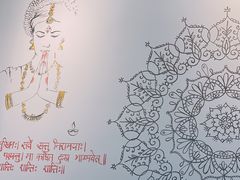 सर्वे सन्तु निरामयाः।
पश्यन्तु। मा कश्चित् दुःख भाग्भवेत्॥
शान्तिः शान्तिः॥